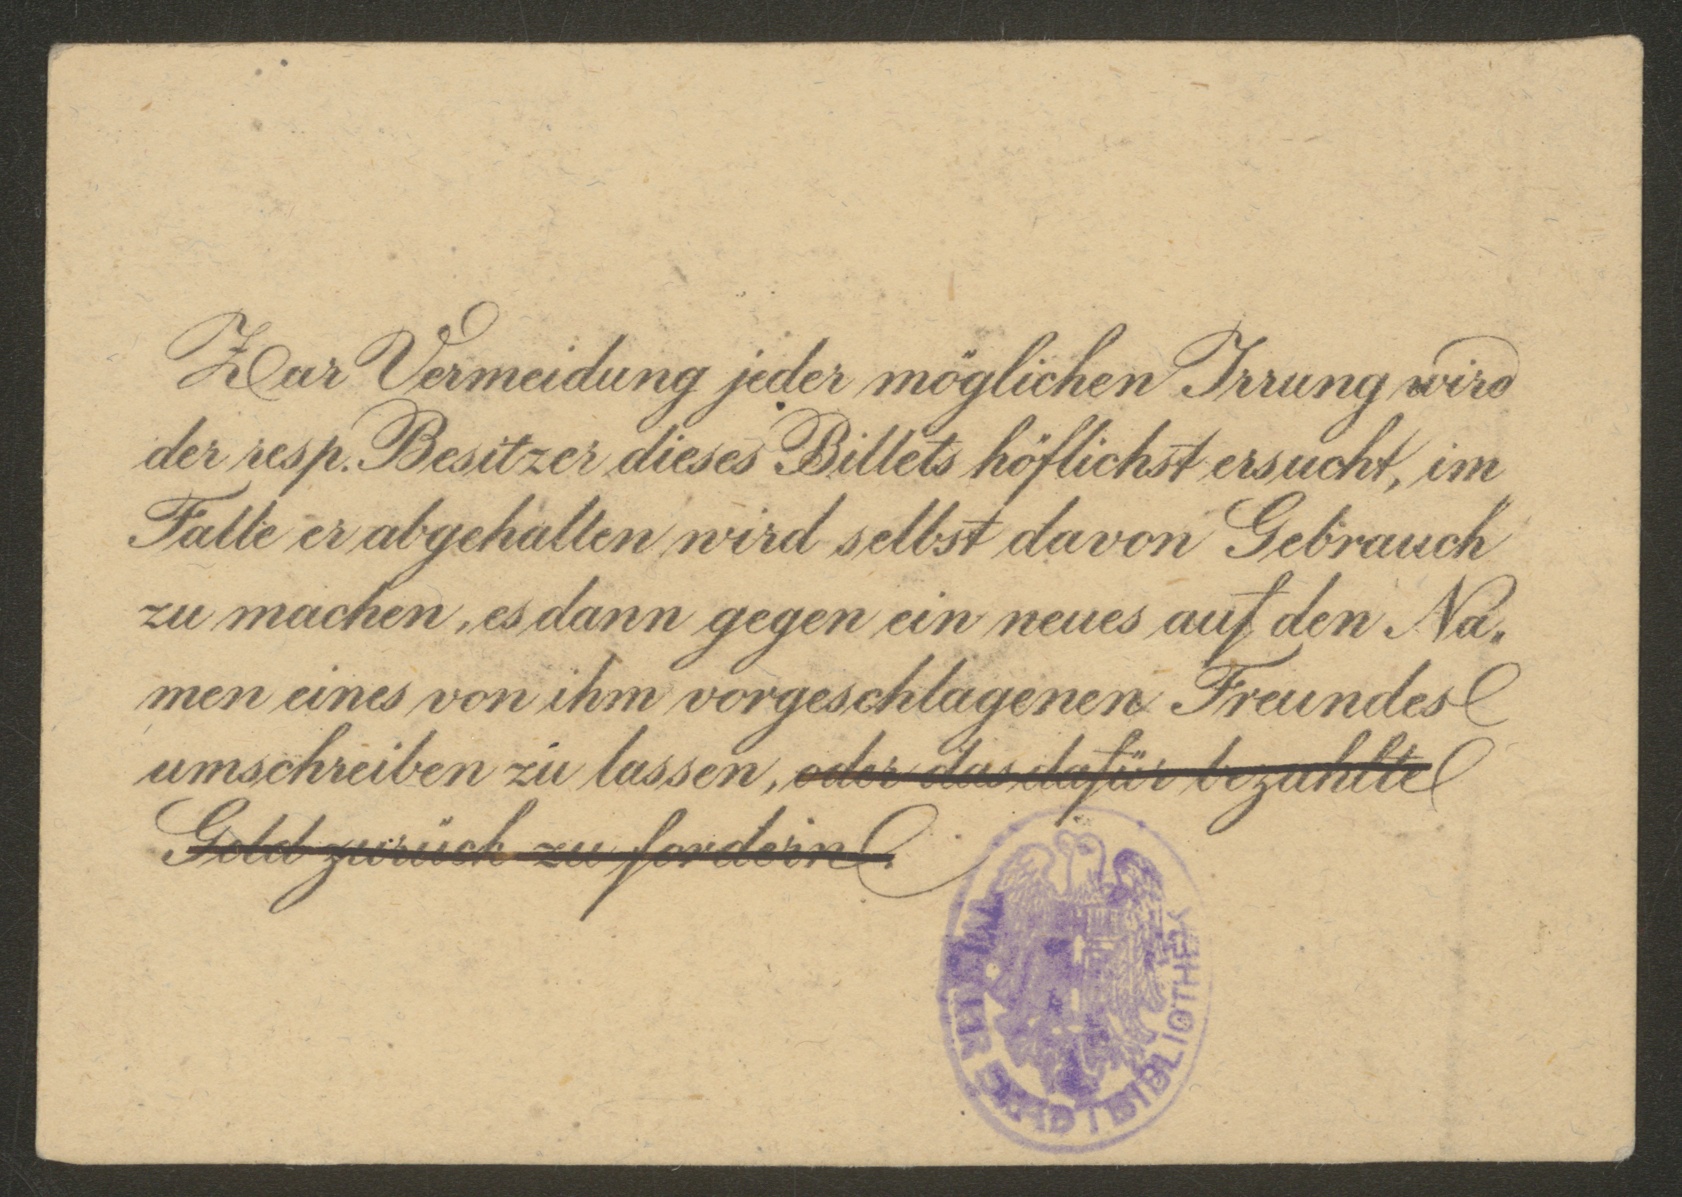 Zur Vermeidung jeder möglichen Irrung wird
der resp. Besitzer dieses Billets höflichst ersucht, im
Falle er abgehalten wird selbst davon Gebrauch
zu machen, es dann gegen ein neues auf den Na-
men eines von ihm vorgeschlagenen Freundes
umschreiben zu lassen, oder das dafür bezahlte
Geld zurück zu fordern.
WIENER STADTBIBLIOTHEK